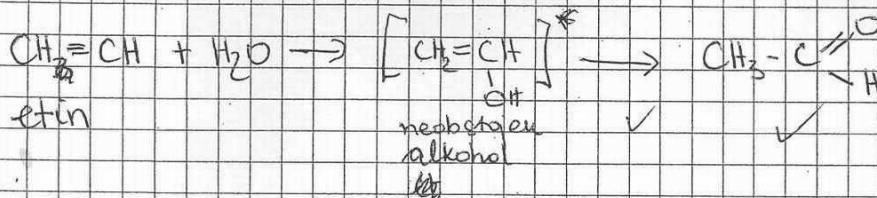 CH≡CH + H₂O → [CH₂=CH]* → CH₃-C=O
OH H
etin
neobstojen
alkohol